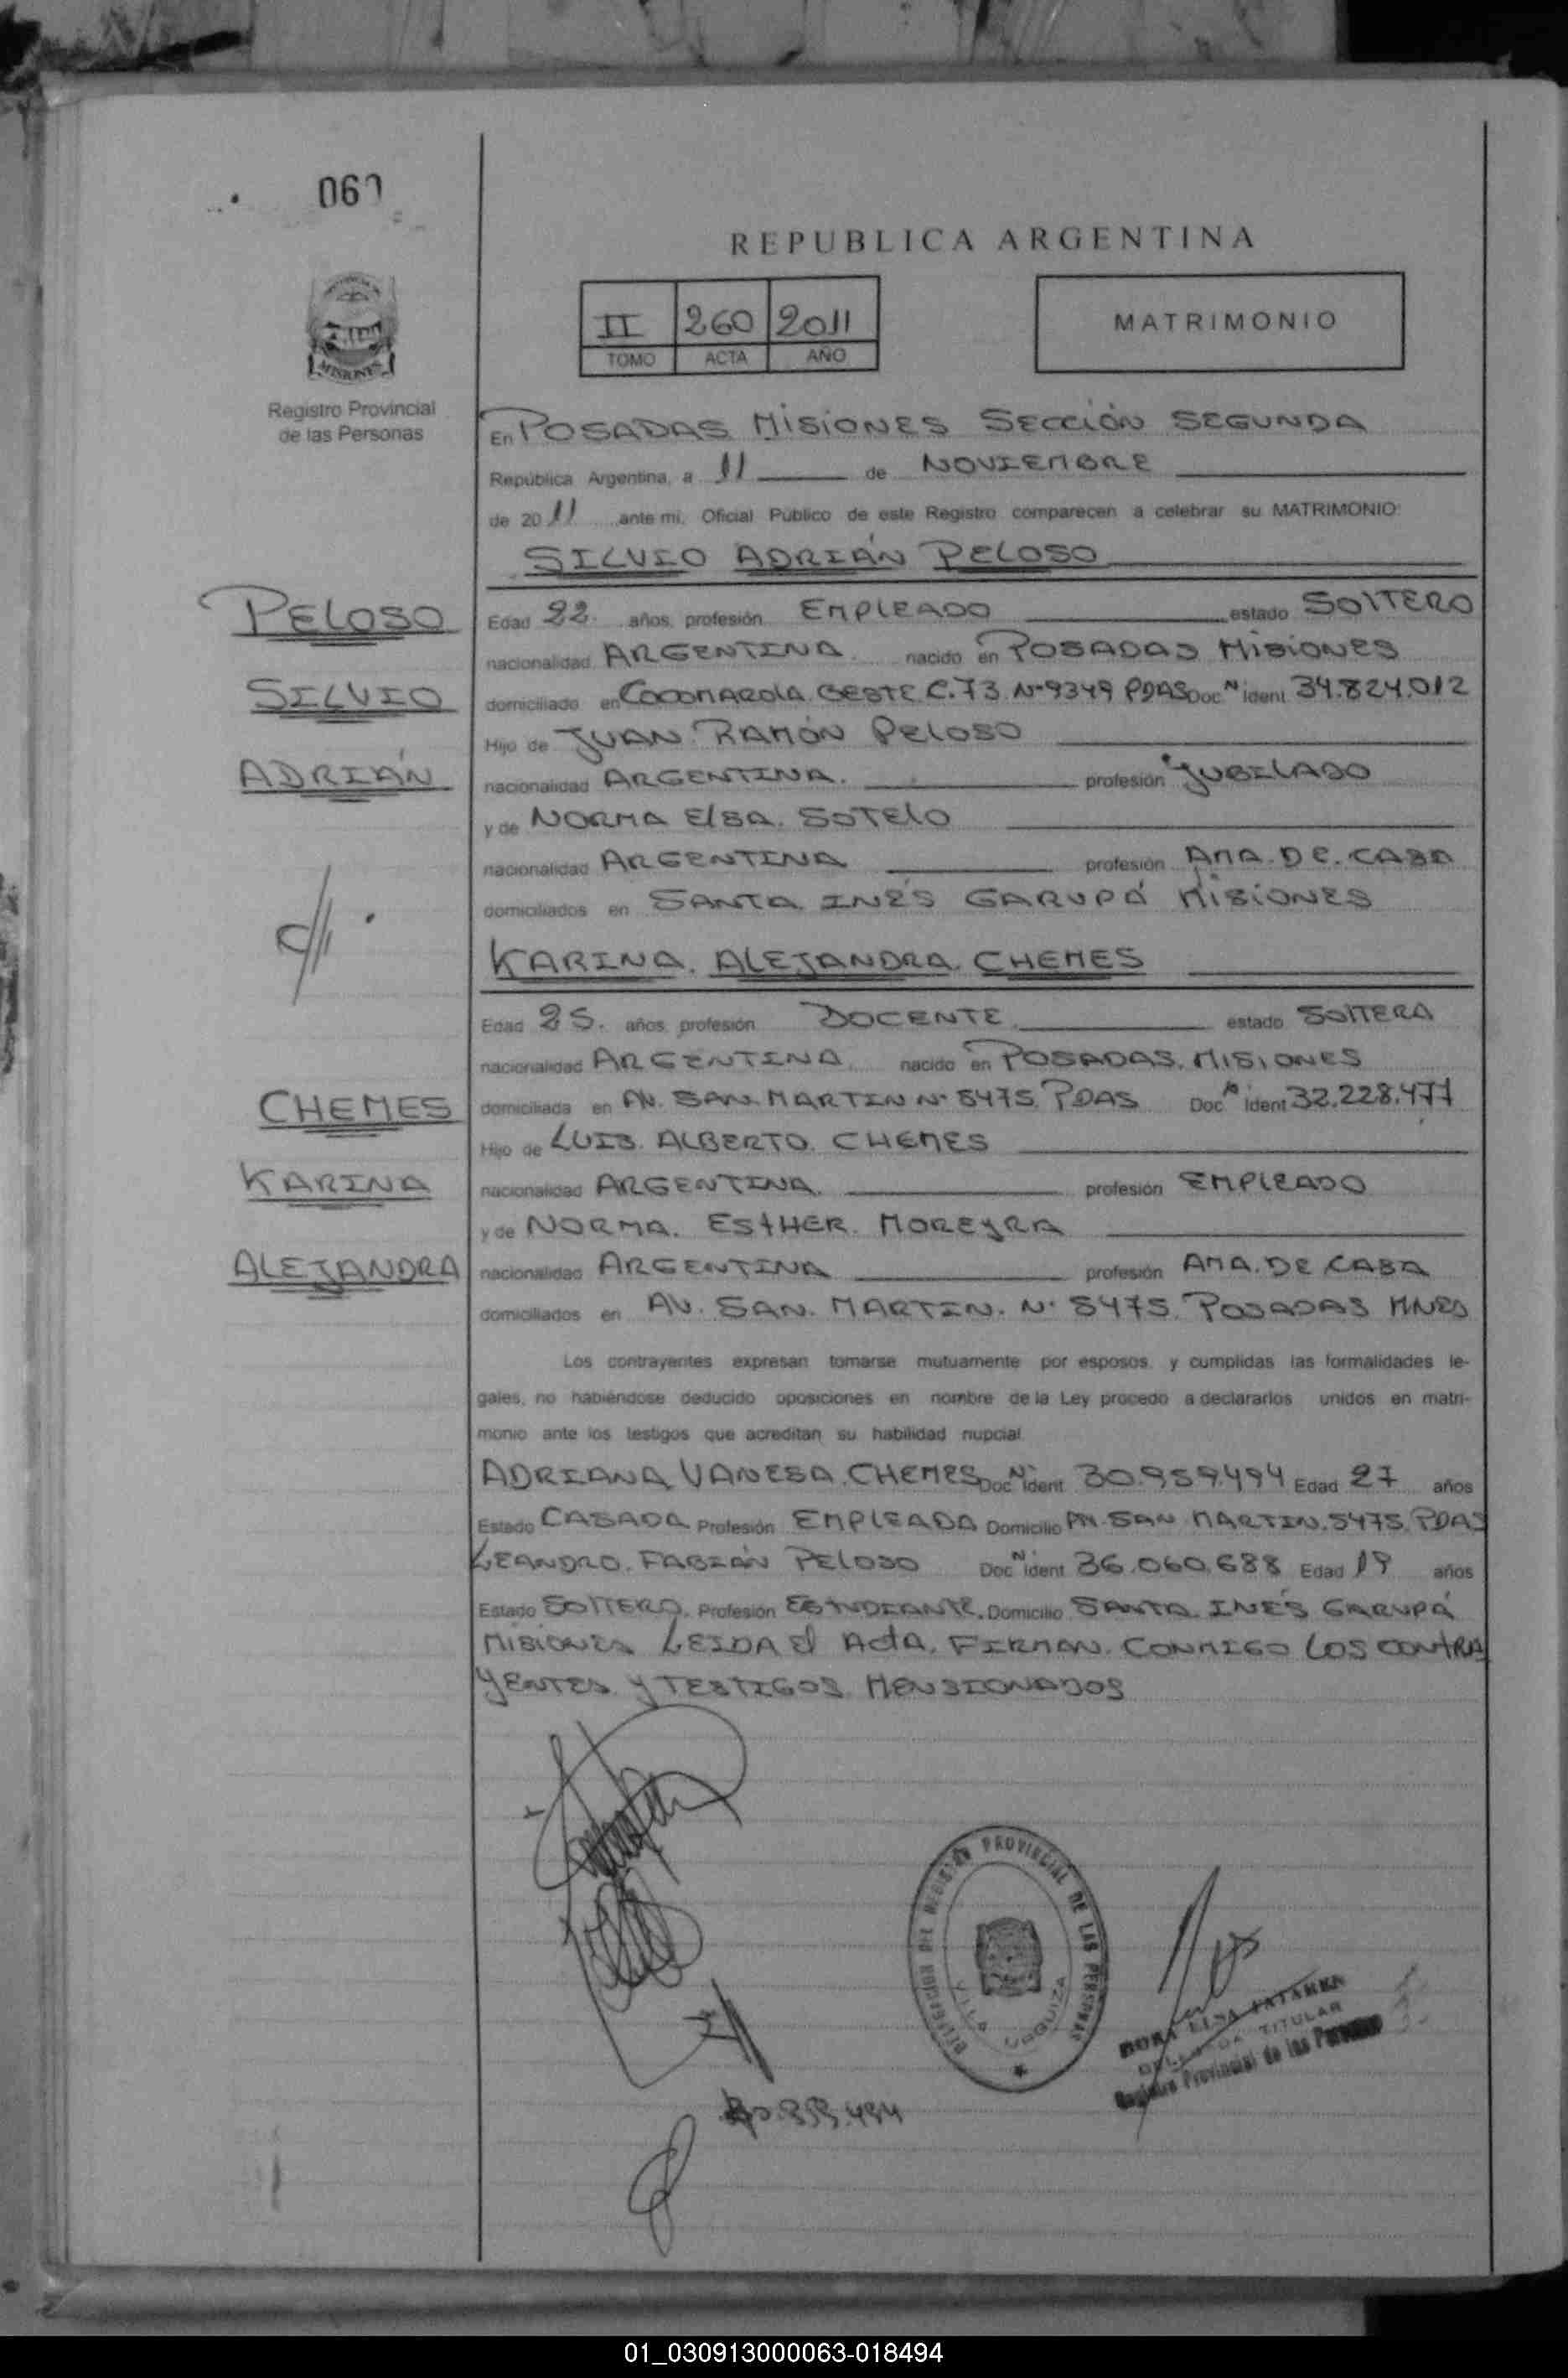 060
REPUBLICA ARGENTINA
II 260 2011
TOMO ACTA AÑO
MATRIMONIO
MISIONES
Registro Provincial
de las Personas
En POSADAS MISIONES SECCIÓN SEGUNDA
República Argentina, a 11 de NOVIEMBRE
de 2011 ante mi, Oficial Público de este Registro comparecen a celebrar su MATRIMONIO:
SILVIO ADRIÁN PELOSO
PELOSO
SILVIO
ADRIÁN
Edad 22. años, profesión EMPLEADO estado SOLTERO
nacionalidad ARGENTINA. nacido en POSADAS MISIONES
domiciliado en COCOMAROLA OESTE C.73 Nº 9349 PDAS Doc N ident 34.824.012
Hijo de JUAN RAMÓN PELOSO
nacionalidad ARGENTINA. profesión JUBILADO
y de NORMA ELSA. SOTELO
nacionalidad ARGENTINA profesión AMA. DE. CASA
domiciliados en SANTA INÉS GARUPÁ MISIONES
KARINA. ALEJANDRA. CHEMES
CHEMES
KARINA
ALEJANDRA
Edad 25. años, profesión DOCENTE estado SOLTERA
nacionalidad ARGENTINA. nacido en POSADAS. MISIONES
domiciliada en AV. SAN MARTIN Nº 5475 PDAS Doc Nº ident 32.228.477
Hijo de LUIS. ALBERTO. CHEMES
nacionalidad ARGENTINA. profesión EMPLEADO
y de NORMA. ESTHER. MOREYRA
nacionalidad ARGENTINA profesión AMA. DE CASA
domiciliados en AV. SAN. MARTIN. Nº 5475. POSADAS MNES
Los contrayentes expresan tomarse mutuamente por esposos, y cumplidas las formalidades le-
gales, no habiéndose deducido oposiciones en nombre de la Ley procedo a declararlos unidos en matri-
monio ante los testigos que acreditan su habilidad nupcial
ADRIANA VANESA. CHEMES Doc N ident 30.959.494 Edad 27 años
Estado CASADA Profesión EMPLEADA Domicilio AV. SAN MARTIN. 5475. PDAS
LEANDRO. FABIÁN PELOSO Doc N ident 36.060.688 Edad 19 años
Estado SOLTERO. Profesión ESTUDIANTE. Domicilio SANTA INÉS GARUPÁ
MISIONES LEIDA El ACTA. FIRMAN. CONMIGO LOS CONTRA
YENTES Y TESTIGOS MENSIONADOS
DELEGACION DEL REGISTRO PROVINCIAL DE LAS PERSONAS
VILLA URQUIZA
TITULAR
Registro Provincial de las Personas
01_030913000063-018494